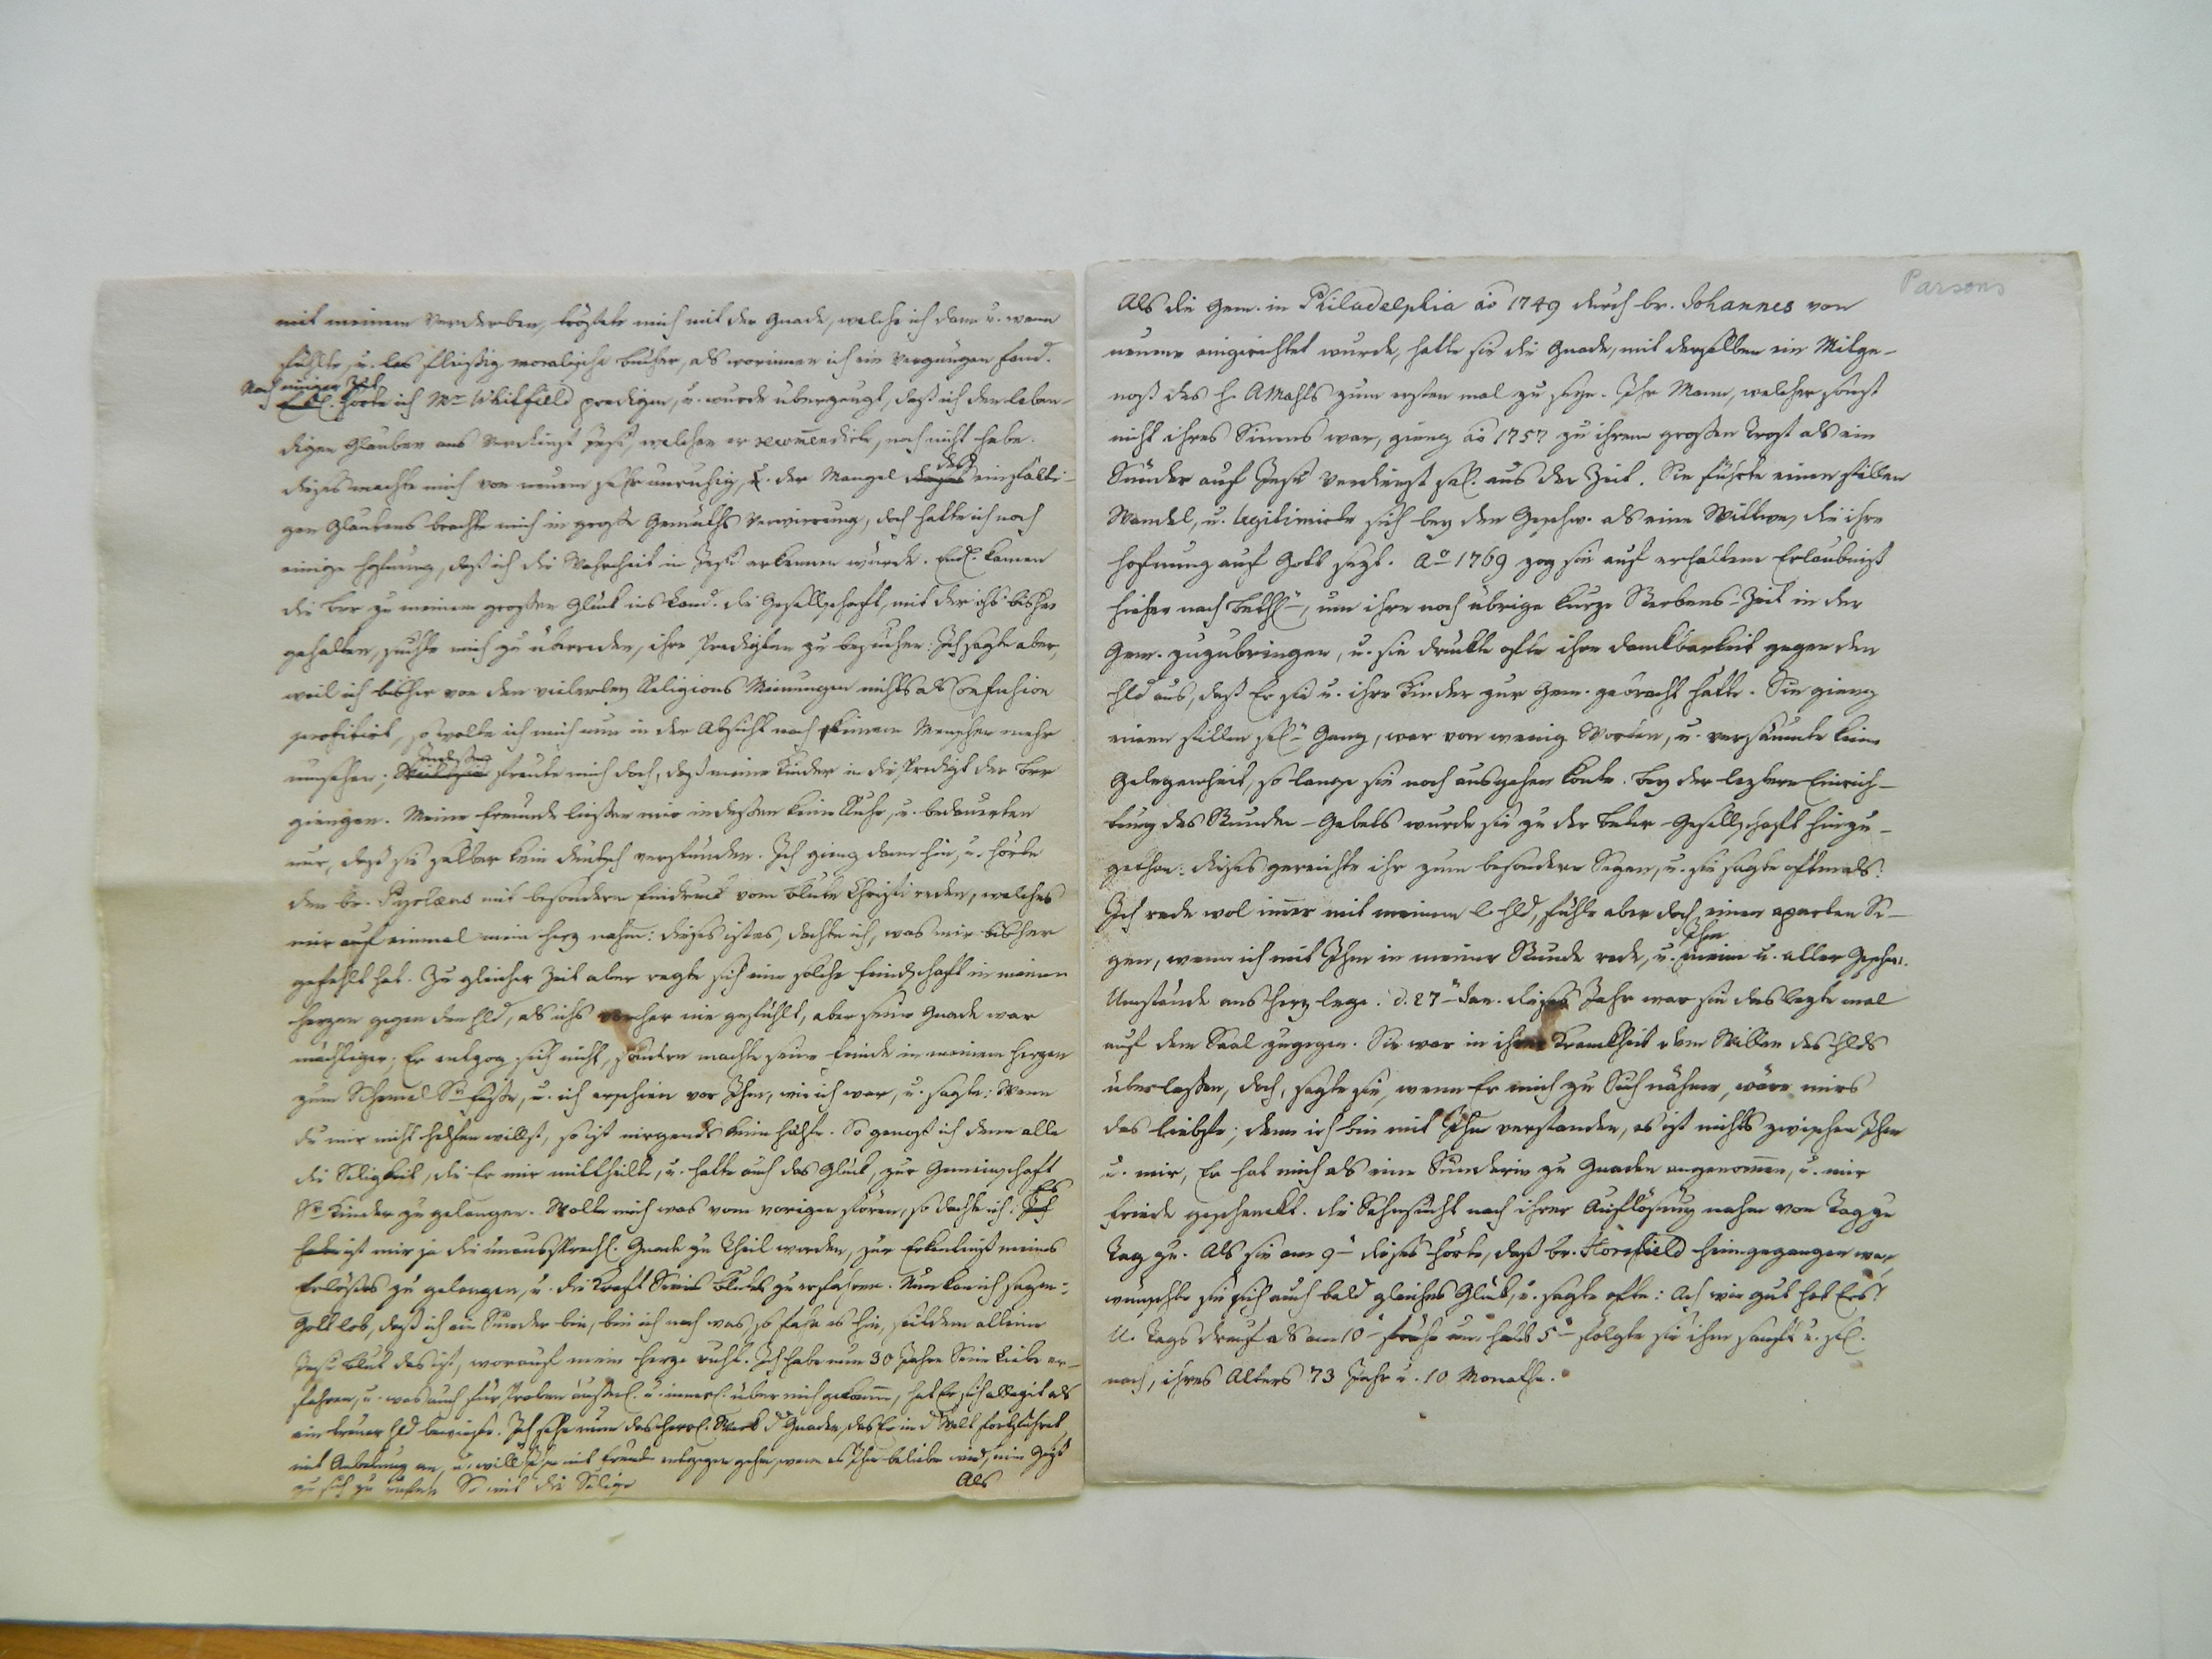 mit meinem Verderben, tröstete mich mit der Gnade, welche ich dann u. wann
fühlte, u. las fleißig moralische bücher, als worinnen ich ein Vergnügen fand.
Nach einiger Zeit
hörte ich Mr. Whitfield predigen, u. wurde überzeugt, daß ich den leben-
digen Glauben ans Verdienst Jesu, welchen er recomendirte, noch nicht habe.
dieses machte mich von neuem sehr unruhig, u. der Mangel des einfälti-
gen Glaubens brachte mich in große Gemüths Verwirrung, doch hatte ich noch
einige hofnung, daß ich die Wahrheit in Jesu erkennen würde. Endl. kamen
die Brr zu meinem großen Glück ins Land. die Gesellschaft, mit der ichs bisher
gehalten, suchte mich zu überreden, ihre Predigten zu besuchen: Ich sagte aber,
weil ich bisher von den vielerley Religions Meinungen nichts als Confusion
profitirt, so wolte ich mich nun in der Absicht nach keinem Menschen mehr
umsehen; Indeßen freute mich doch, daß meine Kinder in die Predigt der Brr
giengen. Meine freunde ließen mir indeßen keine Ruhe, u. bedauerten
nur, daß sie selber kein deutsch verstünden. Ich gieng dann hin, u. hörte
den br. Pyrlæus mit besonderm Eindruck vom Blute Christi reden, welches
mir auf einmal mein herz nahm: dieses ist es, dachte ich, was mir bisher
gefehlt hat. Zu gleicher Zeit aber regte sich eine solche feindschaft in meinem
herzen gegen den Hld, als ichs vorher nie gefühlt, aber seine Gnade war
mächtiger; Er entzog sich nicht, sondern machte seine feinde in meinem herzen
zum Schemel Sr. füße, u. ich erschien vor Ihm, wie ich war, u. sagte: Wenn
du mir nicht helfen willst, so ist nirgends keine hülfe. So genoß ich denn alle
die Seligkeit, die Er mir mittheilte, u. hatte auch das Glück, zur Gemeinschaft
Sr. Kinder zu gelangen. Wolte mich was vom vorigen stören, so dachte ich: Es
ist mir ja die unaussprechl. Gnade zu Theil worden, zur Erkentniß meines
Erlösers zu gelangen, u. die Kraft Seines Blutes zu erfahren. Nun kan ich sagen:
Gott lob, daß ich ein Sünder bin, bin ich noch was, so fahr es hin, seitdem alleine
Jesu Blut das ist, worauf mein herze ruht. Ich habe nun 30 Jahre Seine Liebe er-
fahren, u. was auch für Proben äußerl. u. innerl. über mich gekomen, hat Er sich allezeit als
ein treuer Hld bewiesen. Ich sehe nun das herrl. Werk dr Gnaden, das Er in dr Welt fortführet,
mit Anbetung an, u. will Ihm mit freuden entgegen gehen, wenn es Ihm belieben wird, mein Geist
zu sich zu rufen. So weit die Selige
Als
Parsons
Als die Gem. in Philadelphia ao 1749 durch br. Johannes von
neuem eingerichtet wurde, hatte sie die Gnade, mit derselben ein Mitge-
noß des h. AMahls zum ersten mal zu seyn. Ihr Mann, welcher sonst
nicht ihres Sinnes war, gieng ao 1757 zu ihrem großen Trost als ein
Sünder auf Jesu Verdienst sel. aus der Zeit. Sie führte einen stillen
Wandel, u. legitimirte sich bey den Geschw. als eine Wittwe, die ihre
hofnung auf Gott sezt. Ao 1769 zog sie auf erhaltene Erlaubniß
hieher nach Bethl., um ihre noch übrige kurze Sterbens-Zeit in der
Gem. zuzubringen, u. sie drückte ofte ihre dankbarkeit gegen den
Hld aus, daß Er sie u. ihre Kinder zur Gem. gebracht hätte. Sie gieng
einen stillen sel. Gang, war von wenig Worten, u. versäumte keine
Gelegenheit, so lange sie noch ausgehen konte. Bey der leztern Einrich-
tung des Stunden-Gebets wurde sie zu der Beter-Gesellschaft hinzu-
gethan: dieses gereichte ihr zum besondern Segen, u. sie sagte oftmals:
Ich rede wol imer mit meinem l. Hld, fühle aber doch einen aparten Se-
gen, wenn ich mit Ihm in meiner Stunde rede, u. Ihm meine u. aller Geschw.
Umstände ans herz lege. d. 27n Jan. dieses Jahr war sie das lezte mal
auf dem Saal zugegen. Sie war in ihrer Krankheit dem Willen des Hlds
überlaßen, doch, sagte sie, wenn Er mich zu Sich nähme, wäre mirs
das liebste; denn ich bin mit Ihm verstanden, es ist nichts zwischen Ihm
u. mir, Er hat mich als eine Sünderin zu Gnaden angenomen, u. mir
friede geschenkt. die Sehnsucht nach ihrer Auflösung nahm von Tag zu
Tag zu. Als sie am 9n dieses hörte, daß br. Horsfield heimgegangen war,
wünschte sie sich auch bald gleiches Glück, u. sagte ofte: Ach wie gut hat Ers!
U. Tags drauf als am 10n frühe um halb 5 folgte sie ihm sanft u. sel.
nach, ihres Alters 73 Jahr u. 10 Monathe.